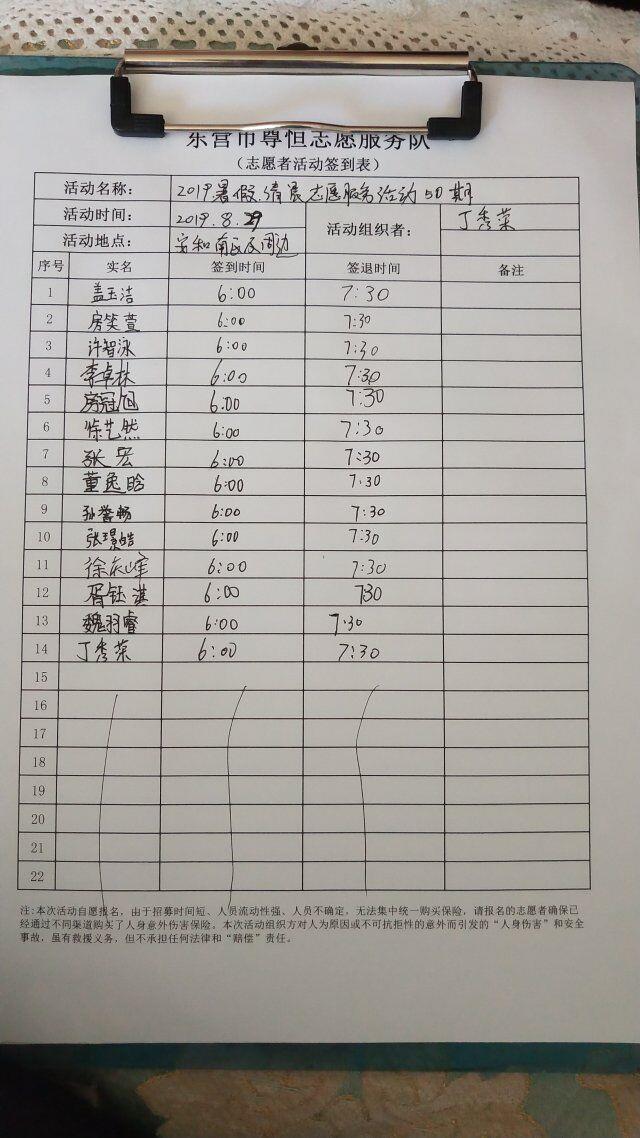 东营市尊恒志愿服务队
（志愿者活动签到表）
活动名称： 2019暑假清晨志愿服务活动50期
活动时间： 2019.8.29 活动组织者： 丁秀荣
活动地点： 安和南区及周边
序号 实名 签到时间 签退时间 备注
1 盖玉洁 6:00 7:30
2 房笑萱 6:00 7:30
3 许智泳 6:00 7:30
4 李卓林 6:00 7:30
5 房冠旭 6.00 7:30
6 徐艺然 6:00 7:30
7 张宏 6:00 7:30
8 董逸晗 6:00 7:30
9 孙誉畅 6:00 7:30
10 张璟皓 6:00 7:30
11 徐 6:00 7:30
12 胥钰淇 6:00 730
13 魏羽睿 6:00 7:30
14 丁秀荣 6:00 7:30
15
16
17
18
19
20
21
22
注:本次活动自愿报名，由于招募时间短、人员流动性强、人员不确定，无法集中统一购买保险，请报名的志愿者确保已
经通过不同渠道购买了人身意外伤害保险。本次活动组织方对人为原因或不可抗拒性的意外而引发的“人身伤害”和安全
事故，虽有救援义务，但不承担任何法律和“赔偿”责任。